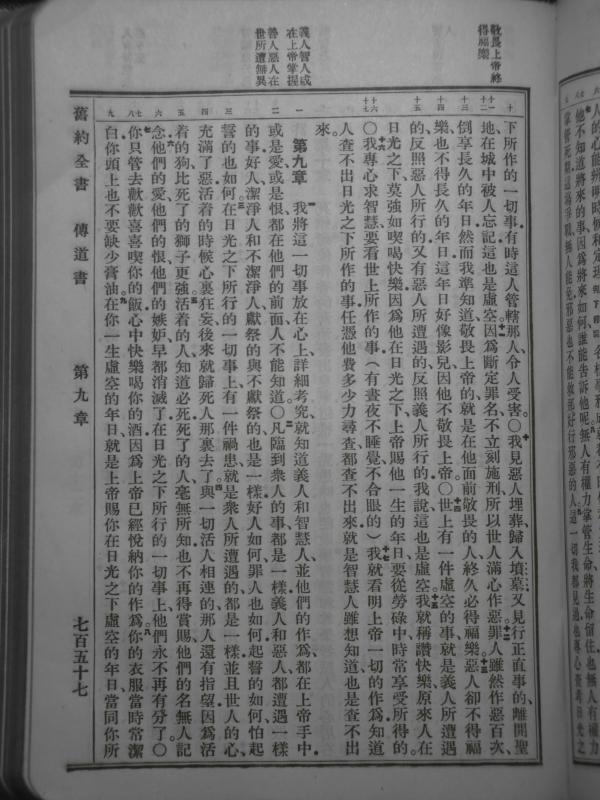 敬畏上帝終
得福樂
義人智人或
在上帝掌握
善人惡人在
世所遭無異
下所作的一切事有時這人管轄那人令人受害〇我見惡人埋葬歸入墳墓又見行正直事的離開聖
地在城中被人忘記這也是虛空因爲斷定罪名不立刻施刑所以世人滿心作惡罪人雖然作惡百次
倒享長久的年日然而我準知道敬畏上帝的就是在他面前敬畏的人終久必得福樂惡人卻不得福
樂也不得長久的年日這年日好像影兒因他不敬畏上帝〇世上有一件虛空的事就是義人所遭遇
的反照惡人所行的又有惡人所遭遇的反照義人所行的我說這也是虛空我就稱讚快樂原來人在
日光之下莫強如喫喝快樂因爲他在日光之下上帝賜他一生的年日要從勞碌中時常享受所得的
〇我專心求智慧要看世上所作的事(有晝夜不睡覺不合眼的)我就看明上帝一切的作爲知道
人查不出日光之下所作的事任憑他費多少力尋查都查不出來就是智慧人雖想知道也是查不出
來
第九章 我將這一切事放在心上詳細考究就知道義人和智慧人並他們的作爲都在上帝手中
或是愛或是恨都在他們的前面人不能知道〇凡臨到衆人的事都是一樣義人和惡人都遭遇一樣
的事好人潔淨人和不潔淨人獻祭的與不獻祭的也是一樣好人如何罪人也如何起誓的如何怕起
誓的也如何在日光之下所行的一切事上有一件禍患就是衆人所遭遇的都是一樣並且世人的心
充滿了惡活着的時候心裏狂妄後來就歸死人那裏去了與一切活人相連的那人還有指望因爲活
着的狗比死了的獅子更強活着的人知道必死死了的人毫無所知也不再得賞賜他們的名無人記
念他們的愛他們的恨他們的嫉妒早都消滅了在日光之下所行的一切事上他們永不再有分了〇
你只管去歡歡喜喜喫你的飯心中快樂喝你的酒因爲上帝已經悅納你的作爲你的衣服當時常潔
白你頭上也不要缺少膏油在你一生虛空的年日就是上帝賜你在日光之下虛空的年日當同你所
舊約全書 傳道書 第九章 七百五十七